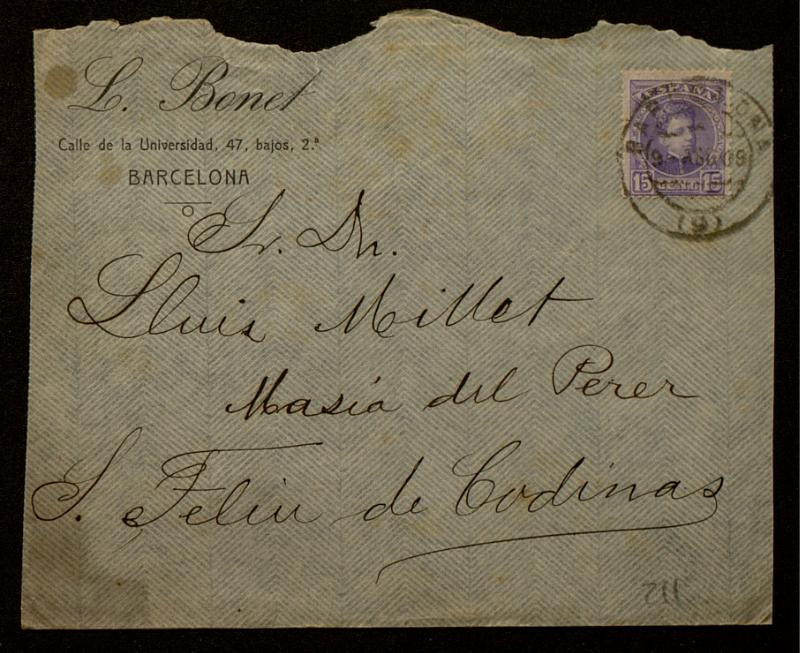 L. Bonet
Calle de la Universidad, 47, bajos, 2.ª
BARCELONA
ESPAÑA
15 15
BARCELONA
9 AGO 09
(9)
Sr. Dn.
Lluis Millet
Masía del Perer
S. Feliu de Codinas